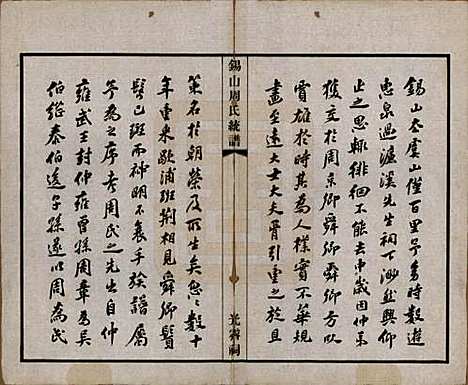 錫山去虞山僅百里予少時數遊
惠泉過濂溪先生祠下渺然興仰
止之思輒徘徊不能去中歲因仲
復交於周京卿舜卿舜卿方以
實雄於時其為人樸實不華規
畫至遠大士大夫胥引重之於且
錫山周氏統譜
光霽祠
策名於朝榮及所生矣忽忽數十
年重來歇浦班荆相見舜卿鬢
髮已斑而神明不衰手族譜屬
予為之序考周氏之先生自仲
雍武王封仲雍曾孫周章為吳
伯繼泰伯逸子孫遂以周為氏